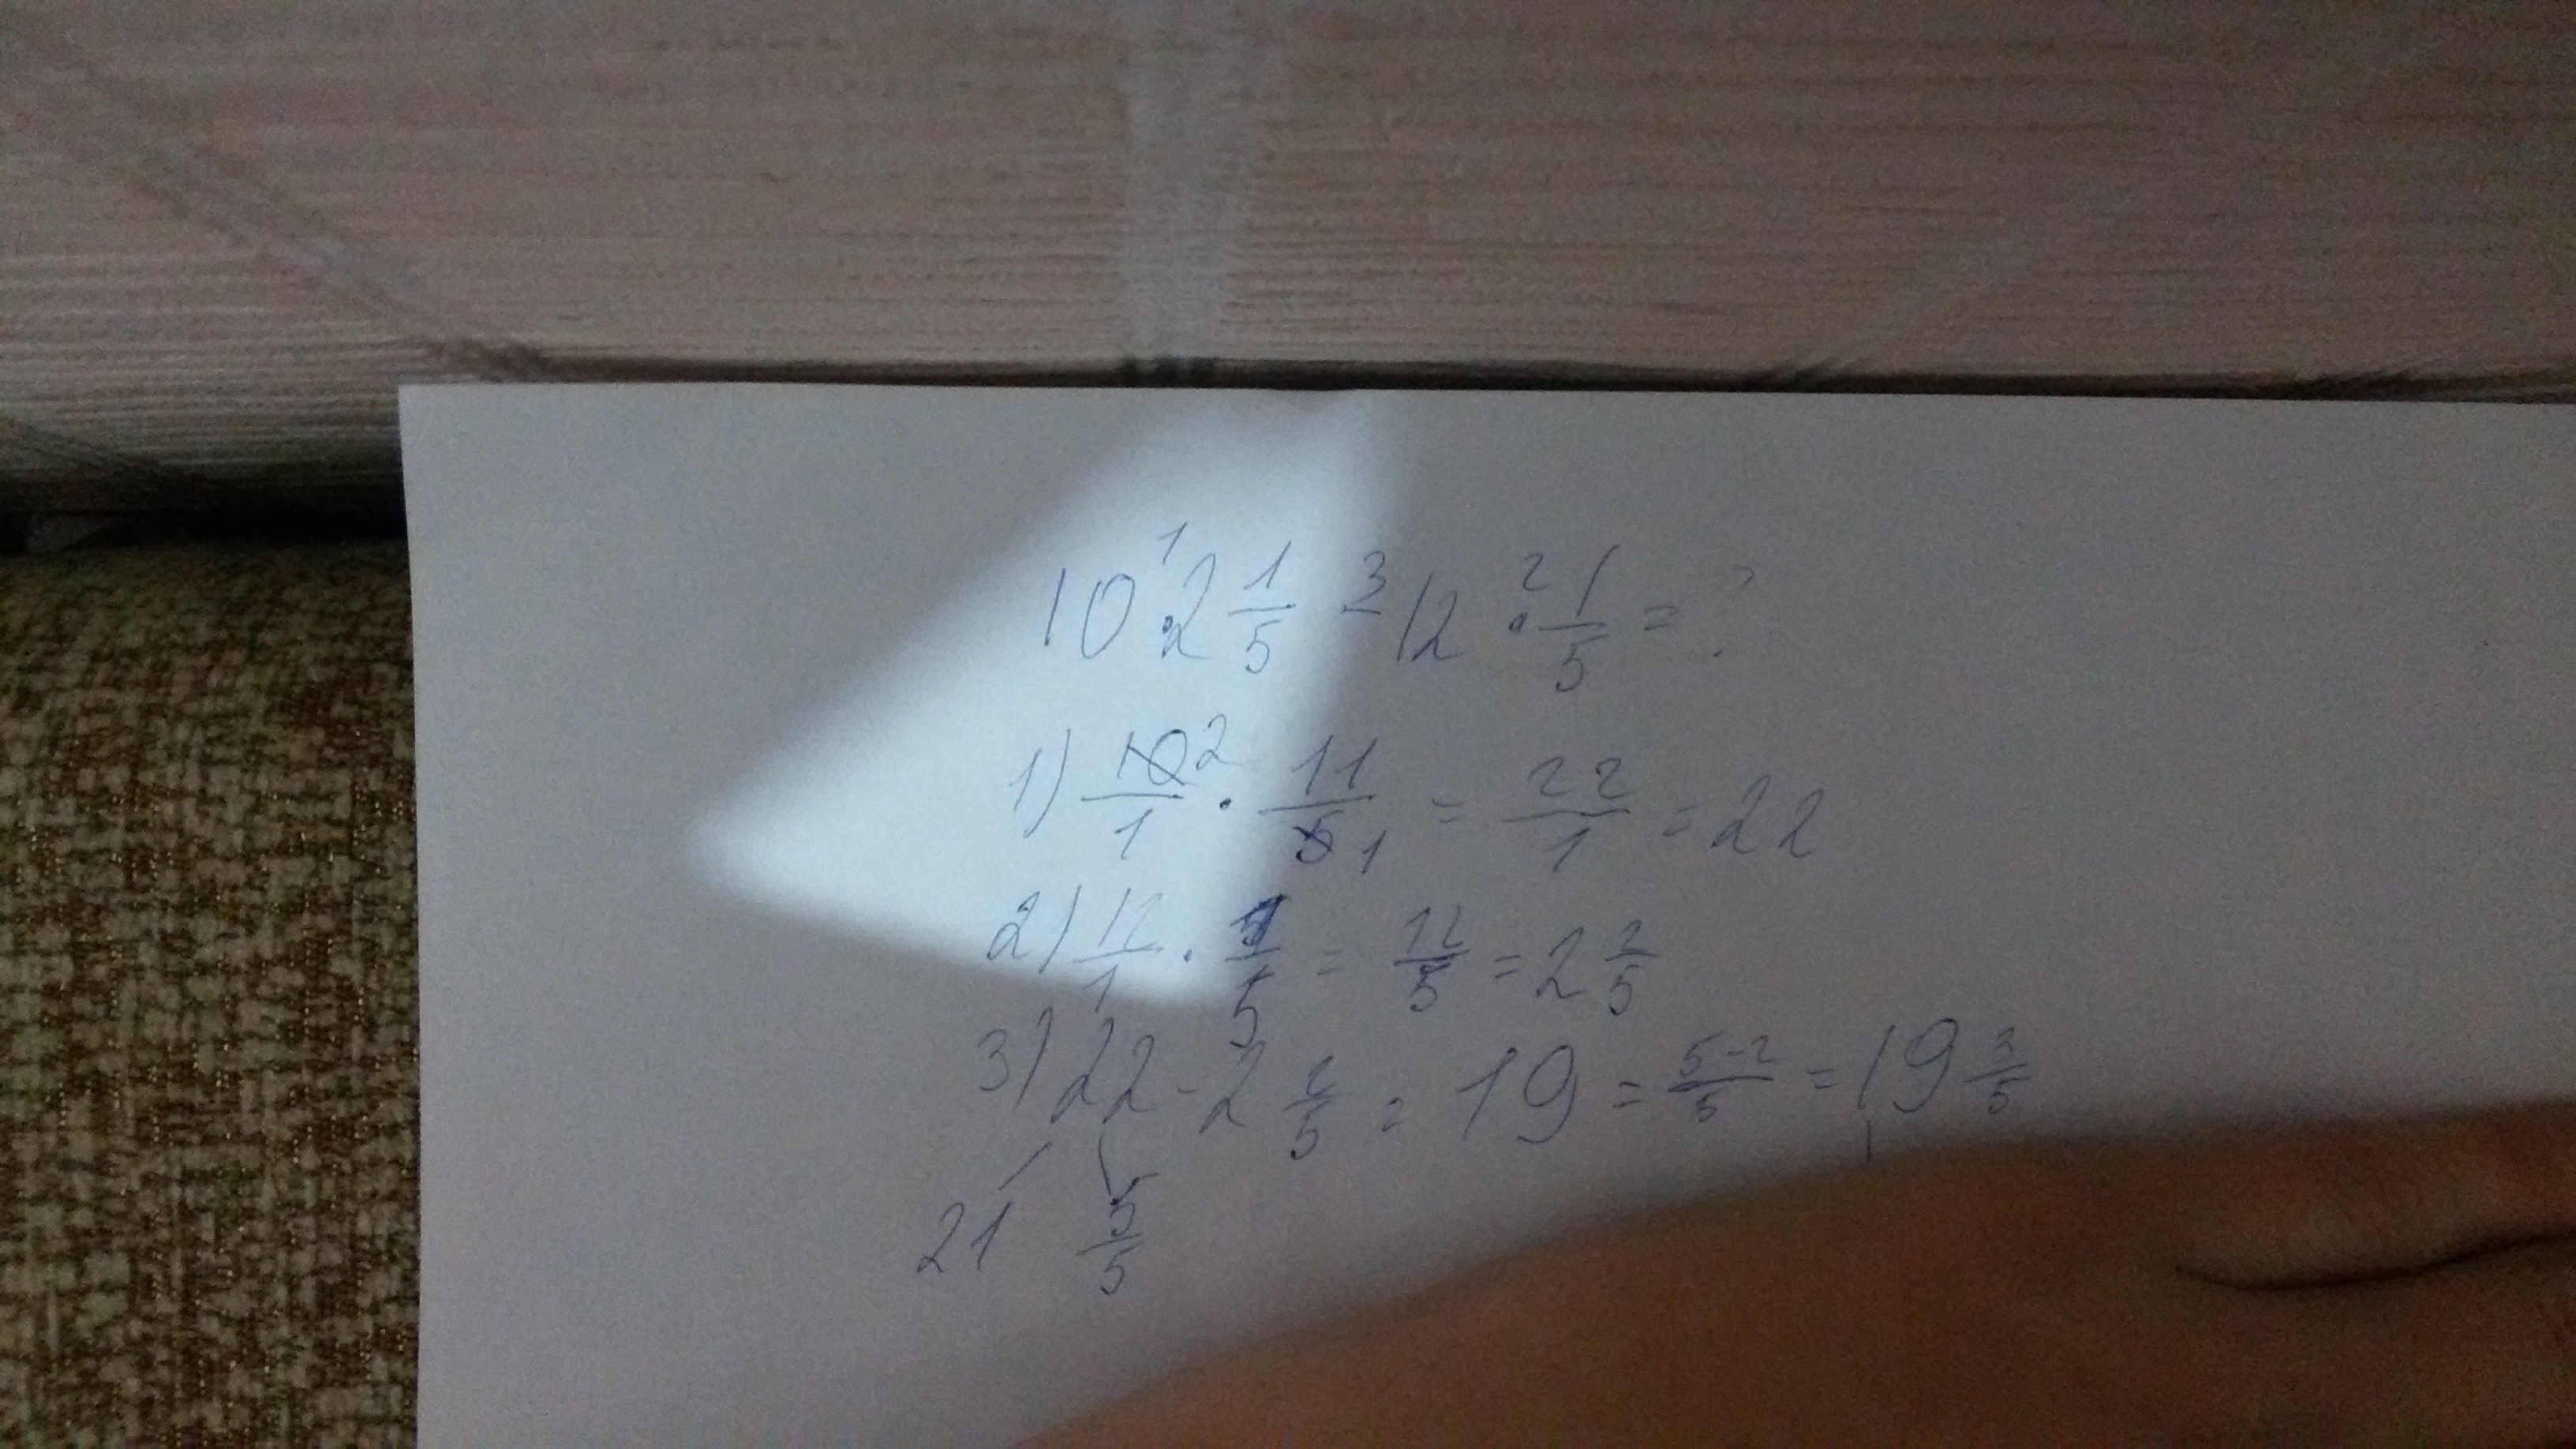 10 ·¹ 2 1/5 -³ 12 ·² 1/5 = ?
1) 10 2/1 · 11/5 1 = 22/1 = 22
2) 12/1 · 1/5 = 12/5 = 2 2/5
3) 22 - 2 2/5 = 19 = 5-2/5 = 19 3/5
21 5/5